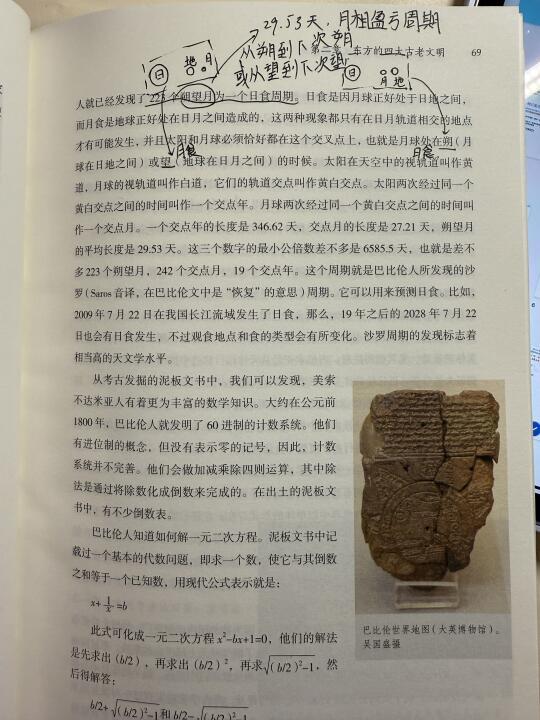 29.53天，月相盈亏周期
从朔到下次朔
或从望到下次望
日 地 月
日 月 地
第二章 东方的四大古老文明 69
人就已经发现了“223个朔望月为一个日食周期。日食是因月球正好处于日地之间，
而月食是地球正好处在日月之间造成的，这两种现象都只有在日月轨道相交的地点
才有可能发生，并且太阳和月球必须恰好都在这个交叉点上，也就是月球处在朔（月
月食
日食
球在日地之间）或望（地球在日月之间）的时候。太阳在天空中的视轨道叫作黄
道，月球的视轨道叫作白道，它们的轨道交点叫作黄白交点。太阳两次经过同一个
黄白交点之间的时间叫作一个交点年。月球两次经过同一个黄白交点之间的时间叫
作一个交点月。一个交点年的长度是 346.62 天，交点月的长度是 27.21 天，朔望月
的平均长度是 29.53 天。这三个数字的最小公倍数差不多是 6585.5 天，也就是差不
多 223 个朔望月，242 个交点月，19 个交点年。这个周期就是巴比伦人所发现的沙
罗（Saros 音译，在巴比伦文中是“恢复”的意思）周期。它可以用来预测日食。比如，
2009 年 7 月 22 日在我国长江流域发生了日食，那么，19 年之后的 2028 年 7 月 22
日也会有日食发生，不过观食地点和食的类型会有所变化。沙罗周期的发现标志着
相当高的天文学水平。
从考古发掘的泥板文书中，我们可以发现，美索
不达米亚人有着更为丰富的数学知识。大约在公元前
1800 年，巴比伦人就发明了 60 进制的计数系统。他们
有进位制的概念，但没有表示零的记号，因此，计数
系统并不完善。他们会做加减乘除四则运算，其中除
法是通过将除数化成倒数来完成的。在出土的泥板文
书中，有不少倒数表。
巴比伦人知道如何解一元二次方程。泥板文书中记
载过一个基本的代数问题，即求一个数，使它与其倒数
之和等于一个已知数，用现代公式表示就是：
x+1/x=b
此式可化成一元二次方程 x²-bx+1=0，他们的解法
是先求出 (b/2)，再求出 (b/2)²，再求√(b/2)²-1，然
后得解答：
b/2+√(b/2)²-1 和 b/2-√(b/2)²-1
巴比伦世界地图（大英博物馆）。
吴国盛摄